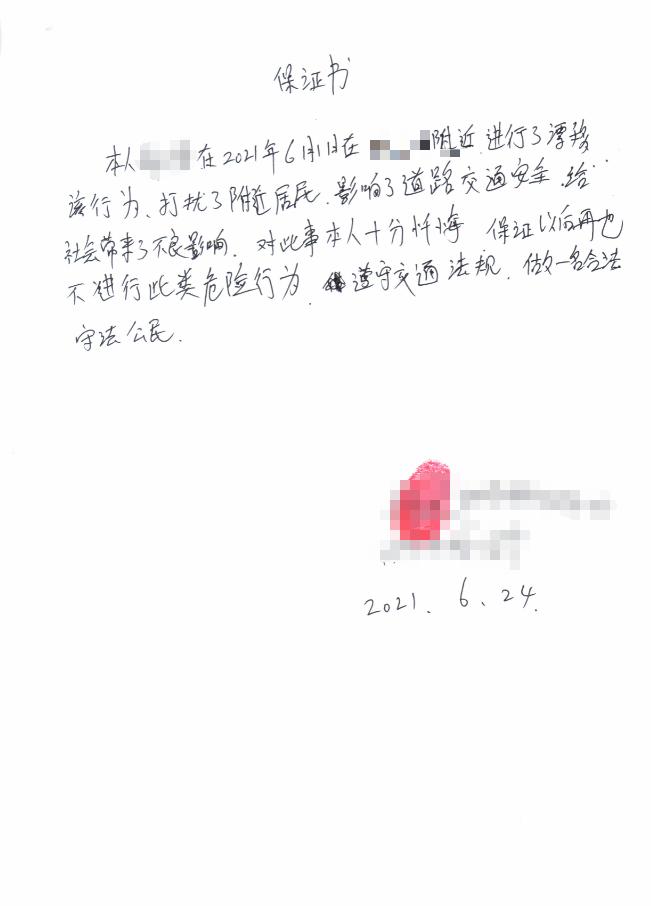 保证书
本人 在2021年6月1日在 附近.进行了漂移
该行为、打扰了附近居民.影响了道路交通安全.给
社会带来了不良影响.对此事本人十分忏悔 保证以后再也
不进行此类危险行为. 遵守交通法规.做一名合法
守法公民.
2021. 6、24.